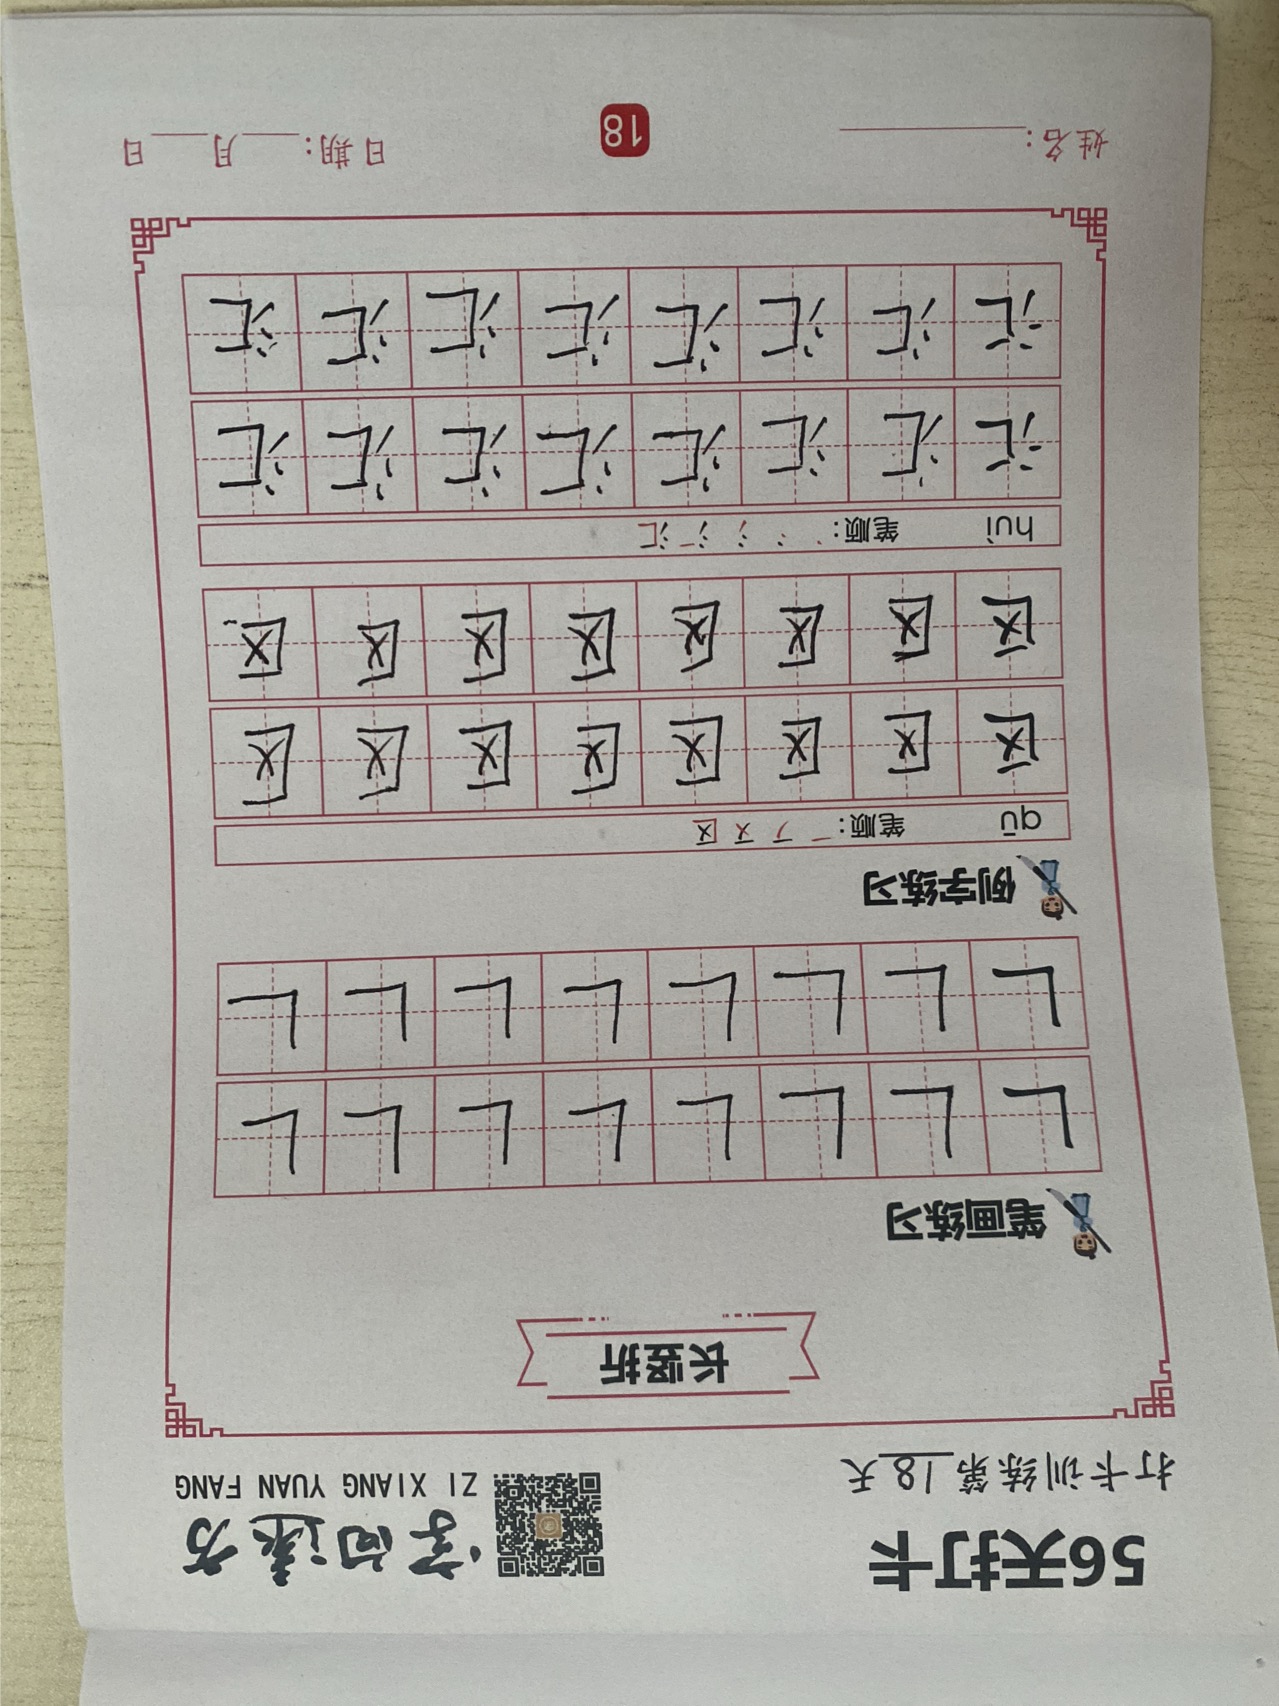 56天打卡
字向远方
打卡训练第18天
ZI XIANG YUAN FANG
长竖折
笔画练习
𠃊 𠃊 𠃊 𠃊 𠃊 𠃊 𠃊 𠃊
𠃊 𠃊 𠃊 𠃊 𠃊 𠃊 𠃊 𠃊
例字练习
qū 笔顺: 区
区 区 区 区 区 区 区 区
区 区 区 区 区 区 区 区
huì 笔顺: 丶 冫 氵 汇
汇 汇 汇 汇 汇 汇 汇 汇
汇 汇 汇 汇 汇 汇 汇 汇
姓名:______ 18 日期:___月___日